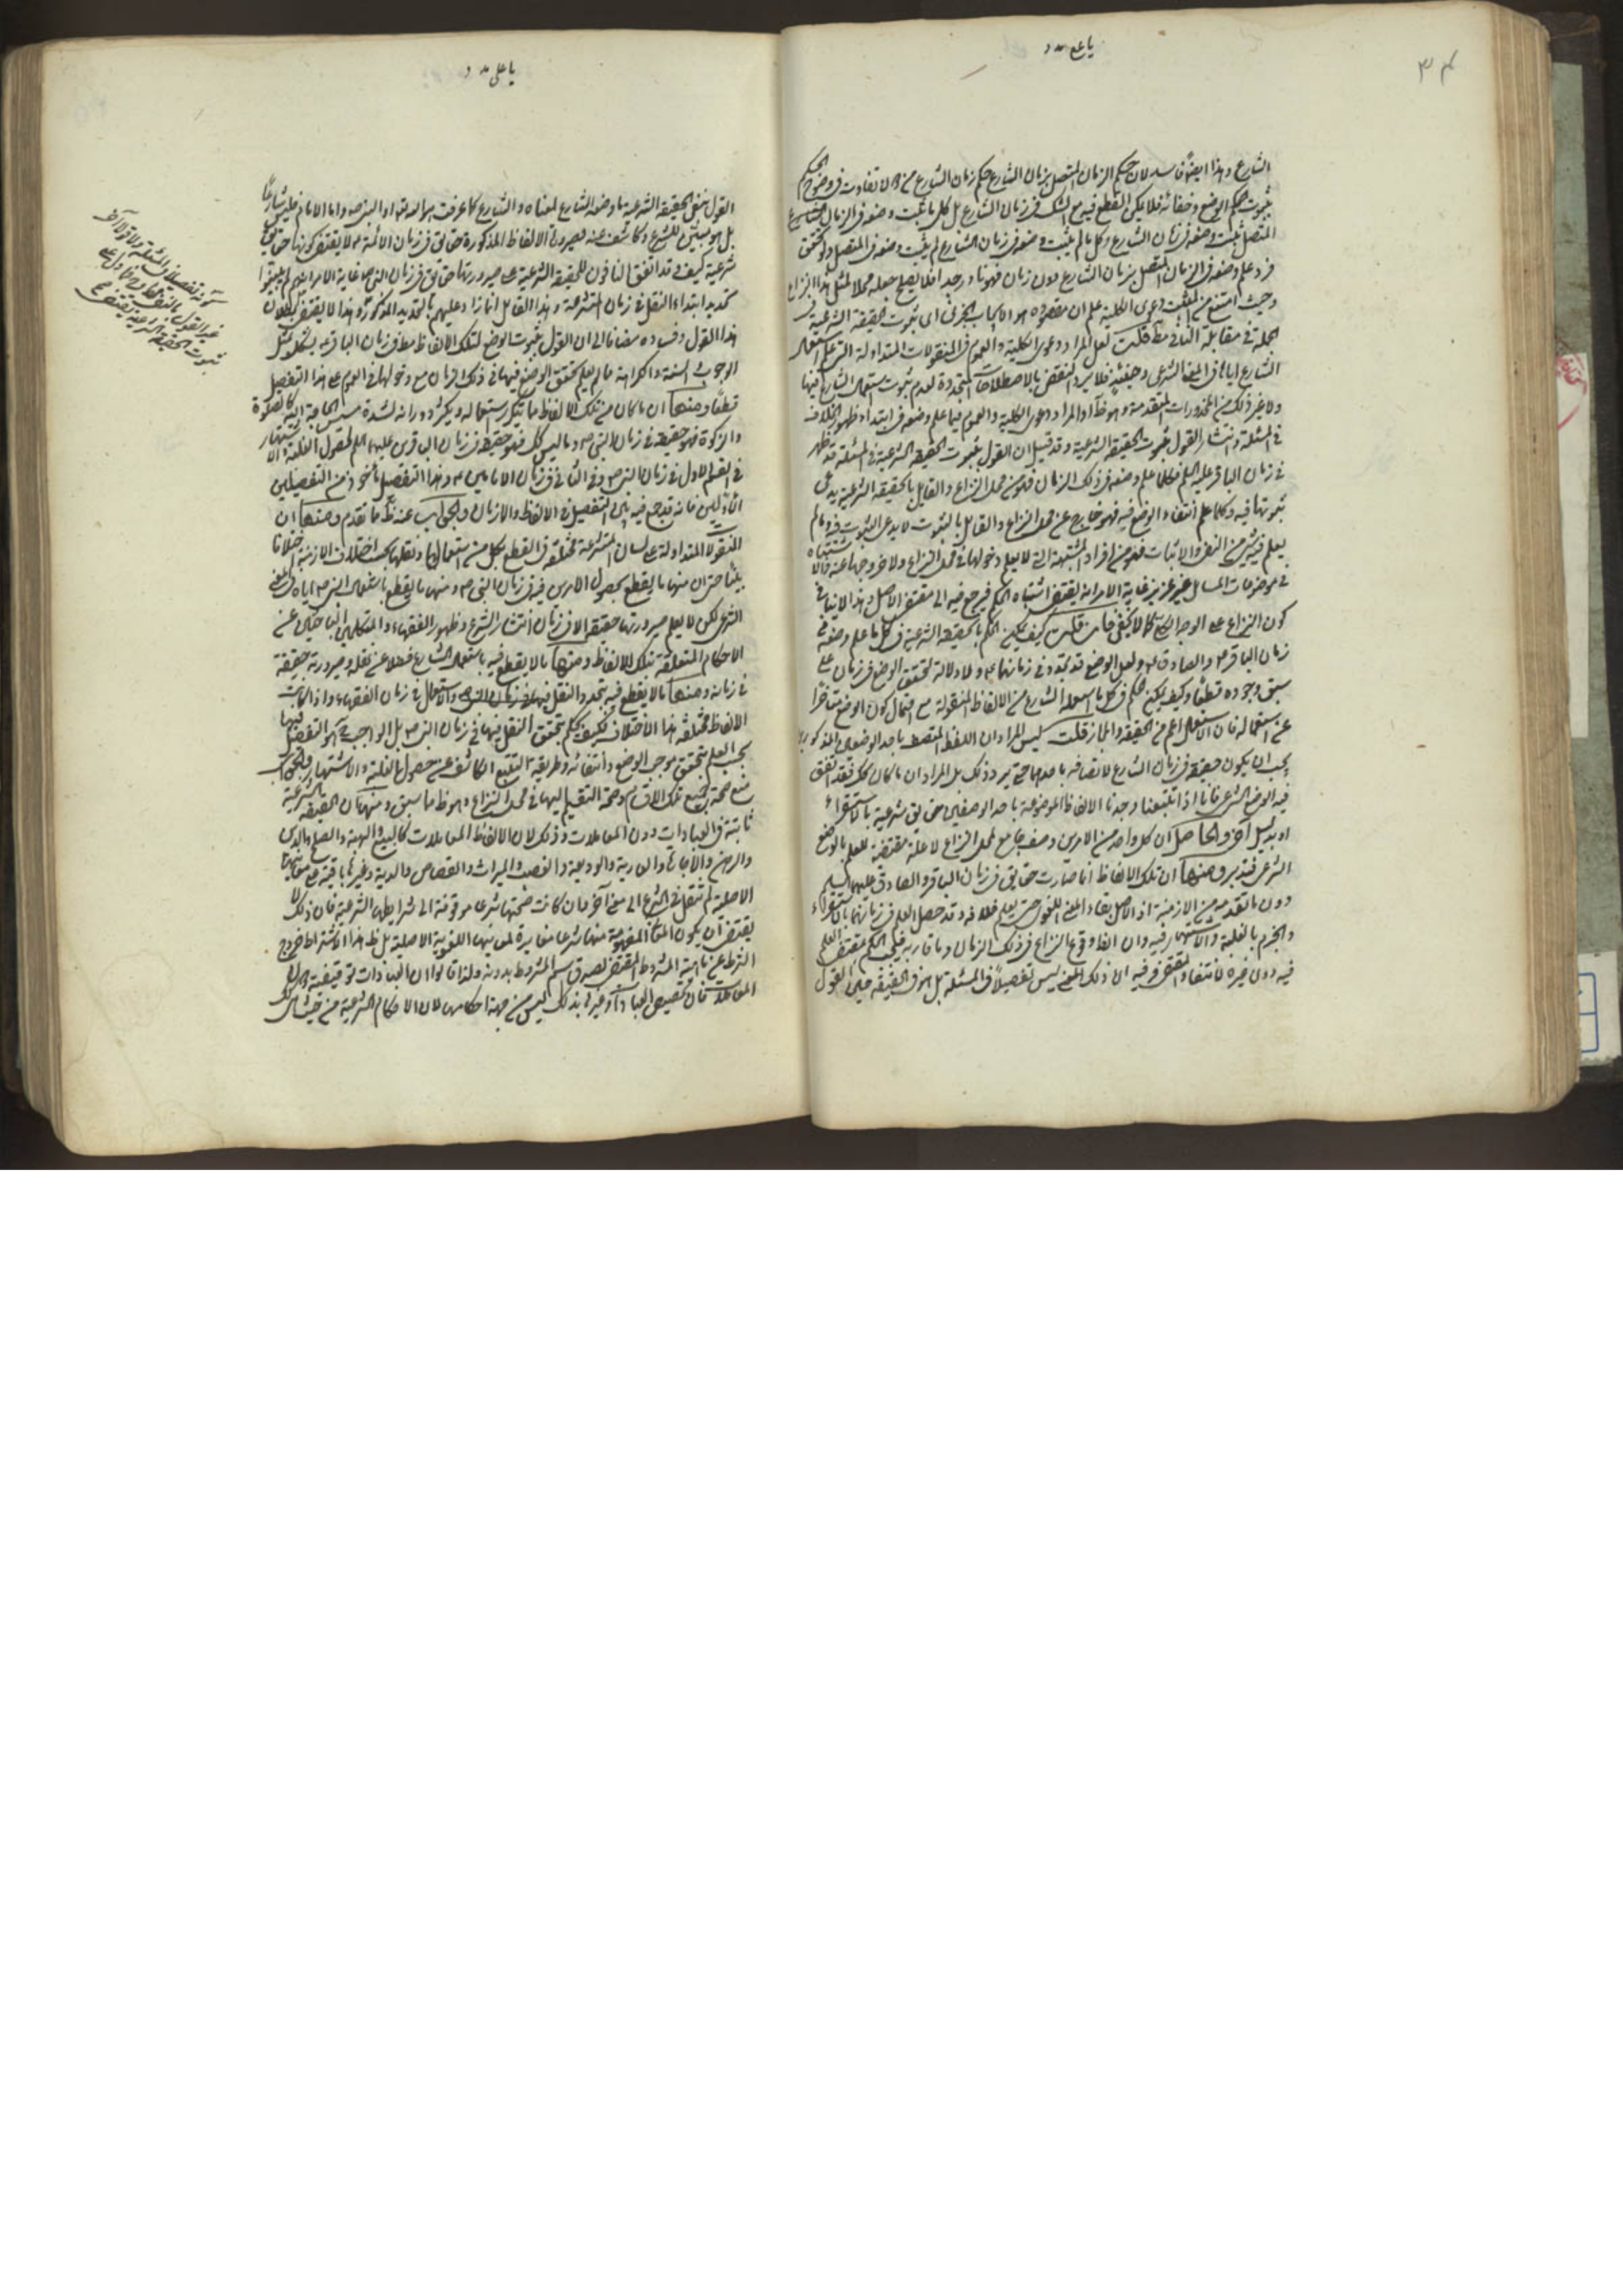 ٣٤
يا علي مدد
الشارع وهذا ايضًا فاسد لان حكم الزمان المتصل بزمان الشارع حكم زمان الشارع من لا تفاوت في وضوح الحكم
بثبوت حكم الوضع وخفائه فلا يمكن القطع فيه مع الشك في زمان الشارع بل كل ما ثبت وضعه في الزمان
المتصل ثبت وضعه في زمان الشارع وكل ما لم يثبت وضعه في زمان الشارع لم يثبت وضعه في المتصل ولو تحقق
فرد علم وضعه في الزمان المتصل بزمان الشارع دون زمان فهو نادر جدا فلا يصلح جعله محلا لمثل هذا النزاع
وحيث امتنع من المثبت دعوى الكلية علم ان مقصوده هو الايجاب الجزئي اي ثبوت الحقيقة الشرعية في
الجملة في مقابلة النافي مط قلت لعل المراد دعوى الكلية والعموم في المنقولات المتداولة التي علم استعمال
الشارع اياها في المعنى الشرعي وحينئذ فلا يرد النقض بالاصطلاحات المتجددة لعدم ثبوت استعمال الشارع فيها
ولا غير ذلك من المحذورات المتقدمة وهو ظ او المراد دعوى الكلية والعموم فيما علم وضعه في ابتداء ظهور الخلاف
في المسئلة وانتشار القول بثبوت الحقيقة الشرعية وقد قيل ان القول بثبوت الحقيقة الشرعية في المسئلة قد ظهر
في زمان الباقر عليه السلم فكلما علم وضعه في ذلك الزمان فهو من محل النزاع والقايل بالحقيقة الشرعية يدعى
ثبوتها فيه وكلما علم انتفاء الوضع فيه فهو خارج عن محل النزاع والقايل بالثبوت لا يدعى الثبوت فيه وما لم
يعلم فيه شئ من النفي والاثبات فهو من افراد المشتبهة التي لا يعلم دخولها في محل النزاع ولا خروجها عنه والاشتباه
في موضوعات المسايل غير عزيز غاية الامر انه يقتضي اشتباه الحكم فيرجع فيه الى مقتضى الاصل وهذا لا ينافي
كون النزاع على الوجه الكلي كما لا يخفى فان قلت كيف يمكن الحكم بالحقيقة الشرعية في كل ما علم وضعه في
زمان الباقر والصادق ولعل الوضع قد تجدد في زمانهما ولا دلالة لتحقق الوضع في زمان على
سبق وجوده قطعًا وكيف يمكن الحكم في كل ما استعمله الشارع من الالفاظ المنقولة مع احتمال كون الوضع متاخرا
عن استعماله فان الاستعمال اعم من الحقيقة والمجاز قلت ليس المراد ان اللفظ المتصف باحد الوضعين المذكورين
يجب ان يكون حقيقة في زمان الشارع لاتصافه باحدهما حتى يرد ذلك بل المراد ان ما كان كك فقد اتفق
فيه الوضع الشرعي فانا اذا تتبعنا وجدنا الالفاظ الموضوعة باحد الوصفين حقايق شرعية بالاستقراء
او بدليل آخر والحاصل ان كل واحد من الامرين وصف جامع لمحل النزاع لا علة مقتضية للعلم بالوضع
الشرعي فتدبر ومنها ان تلك الالفاظ انما صارت حقايق في زمان الباقر والصادق عليهما السلم
دون ما تقدمه من الازمنة اذ الاصل بقاء المعنى اللغوي حتى يعلم خلافه وقد حصل العلم في زمانهما بالاستقراء
والجزم بالغلبة والاشتهار فيه وان اتفق وقوع النزاع في ذلك الزمان وما قاربه فيلزم الحكم بمقتضى العلم
فيه دون غيره لانتفاء المقتضى فيه الا ان ذلك المعنى ليس تفصيلاً في المسئلة بل هو في الحقيقة عين القول
يا علي مدد
القول بنفي الحقيقة الشرعية ما وضعه الشارع لمعناه والشارع كما عرفت هو الله تعالى او النبي ص واما الامام فليس شارعًا
بل هو مبيّن للشرع وكاشف عنه فصيرورة الالفاظ المذكورة حقايق في زمان الائمة لا يقتضى كونها حقايق
شرعية كيف وقد اتفق النافون للحقيقة الشرعية على صيرورتها حقايق في زمان غاية الامر انهم لم يعينوا
تحديد ابتداء النقل في زمان المتشرعة وهذا القايل انما زاد عليهم بالتحديد المذكور وهذا لا يقتضى بطلان
هذا القول وفساده مضافا الى ان القول بثبوت الوضع لتلك الالفاظ مط في زمان الباقر يشكل بمثل
الوجوب والسنة والكراهة مما لم يعلم تحقق الوضع فيها في ذلك الزمان مع دخولها في العموم على هذا التفصيل
قطعًا ومنها ان ما كان من تلك الالفاظ مما يتكرر استعماله ويكثر دورانه لشدة مسيس الحاجة اليه كالصلوة
والزكوة فهو حقيقة في زمان النبي ص وما ليس كك فهو حقيقة في زمان الباقرين عليهما السلم لحصول الغلبة والاشتهار
في القسم الاول في زمان النبي ص وفي الثاني في زمان الامامين وهذا التفصيل مأخوذ من التفصيلين
الاولين فانه قد جمع فيه بين التفصيل في الالفاظ والازمان والجواب عنه ظ مما تقدم ومنها ان
المنقولات المتداولة على لسان المتشرعة مختلفة في القطع بكل من استعمالها ونقلها بحسب اختلاف الازمنة اختلافا
بيّنًا حتى ان منها ما يقطع بحصول الامرين فيه في زمان النبي ص ومنها ما يقطع باستعمال النبي ص اياه في المعنى
الشرعي لكن لا يعلم صيرورتها حقيقة الا في زمان انتشار الشرع وظهور الفقهاء والمتكلمين الباحثين عن
الاحكام المتعلقة بتلك الالفاظ ومنها ما لا يقطع فيه باستعمال الشارع فضلا عن نقله وصيرورته حقيقة
في زمانه ومنها ما لا يقطع فيه بتجدد النقل والاستعمال في زمان الفقهاء واذا كانت
الالفاظ مختلفة هذا الاختلاف فكيف يحكم بتحقق النقل فيها في زمان النبي ص بل الواجب هو التفصيل فيها
بحسب العلم بتحقق موجب الوضع وانتفائه وطريقه التتبع الكاشف عن حصول الغلبة والاشتهار والجواب
منع صحة جميع تلك الاقسام وصحة التقسيم اليها في محل النزاع وهو ظ مما سبق ومنها ان الحقيقة الشرعية
ثابتة في العبادات دون المعاملات وذلك لان الالفاظ المعاملات كالبيع والهبة والصلح والدين
والرهن والاجارة والعارية والوديعة والغصب والميراث والقصاص والدية وغيرها باقية على معانيها
الاصلية لم تنقل في الشرع الى معنى آخر وان كانت صحتها شرعا موقوفة الى شرايطها الشرعية فان ذلك لا
يقتضى ان يكون المعاني المفهومة منها شرعا مغايرة لمعانيها اللغوية الاصلية بل ظ هذا الاشتراط خروج
الشرط عن ماهية المشروط المقتضى لصدق اسم المشروط بدونه ولذا قالوا ان العبادات توقيفية دون
المعاملات فان تخصيص العبادات وغيره بذلك ليس من جهة احكامها لان الاحكام الشرعية من حيث هي كك
كونه تفصيلا في المسئلة وقولا آخر
غير القول بالنفي
ثبوت الحقيقة الشرعية يقتضى